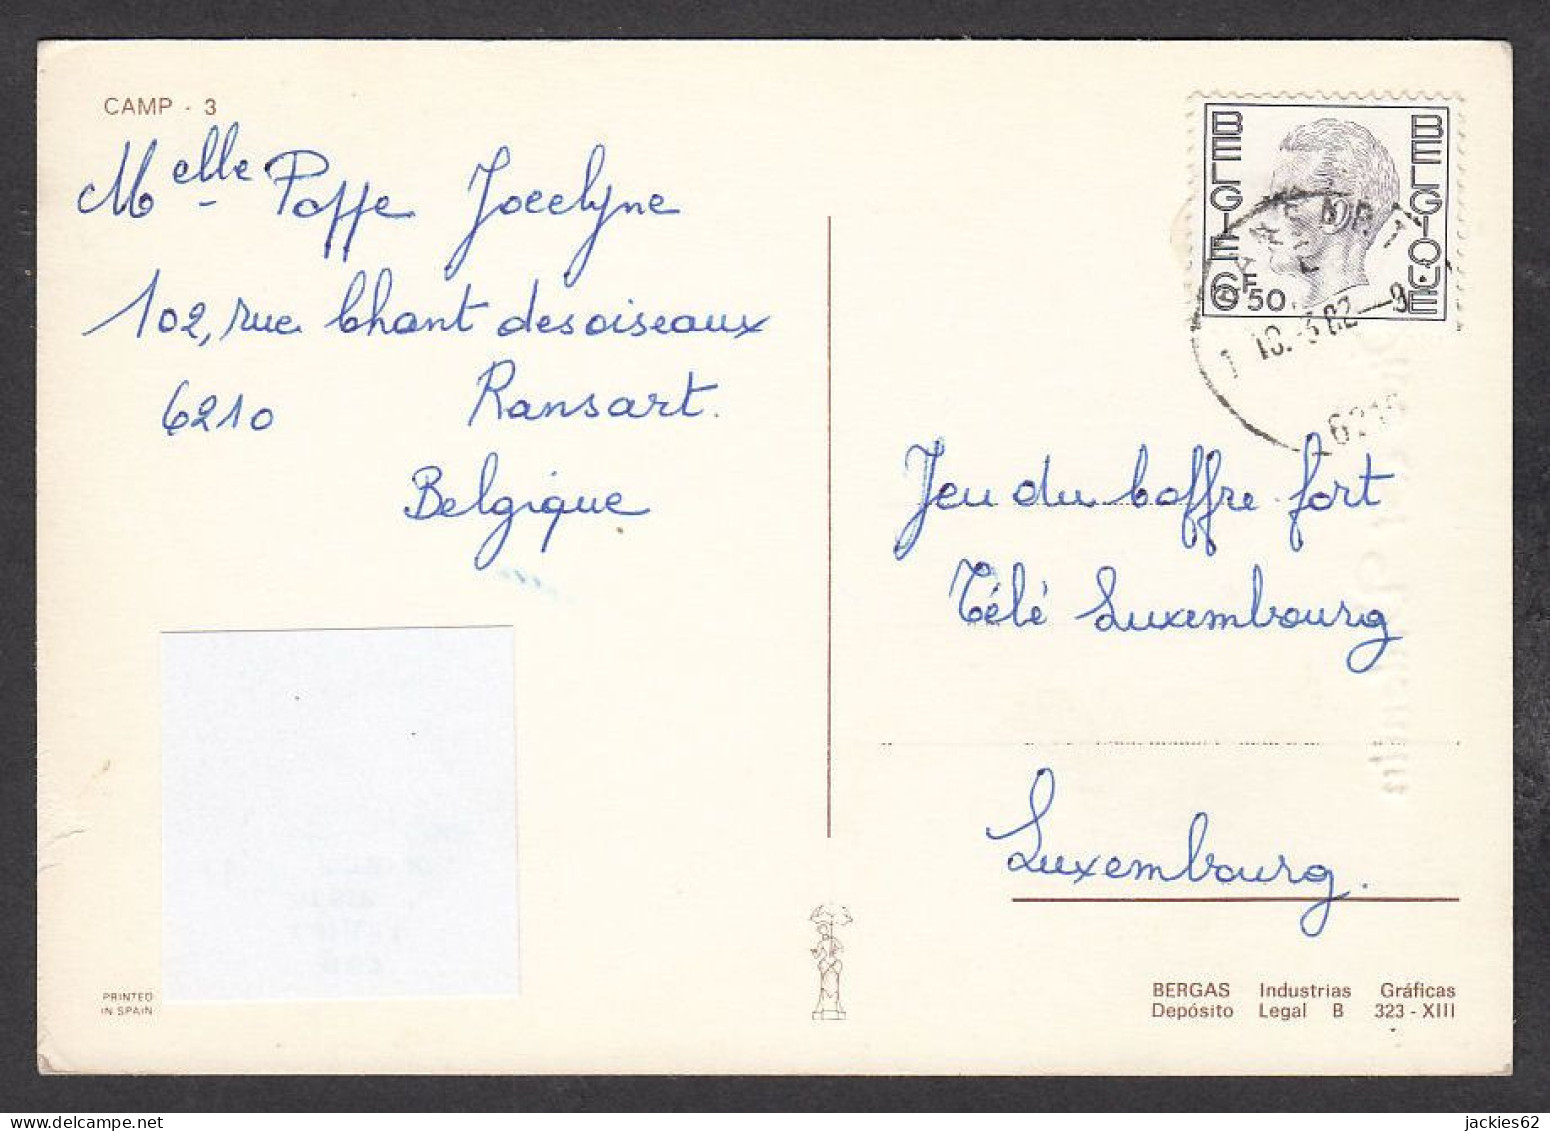 CAMP - 3
Melle Poffe Jocelyne
102, rue Chant des oiseaux
6210 Ransart.
Belgique
BELGIE
BELGIQUE
6F50
1 10.-3.82--9
6210
Jeu du Coffre fort
Télé Luxembourg
Luxembourg.
PRINTED
IN SPAIN
BERGAS Industrias Gráficas
Depósito Legal B 323 - XIII
jackies62